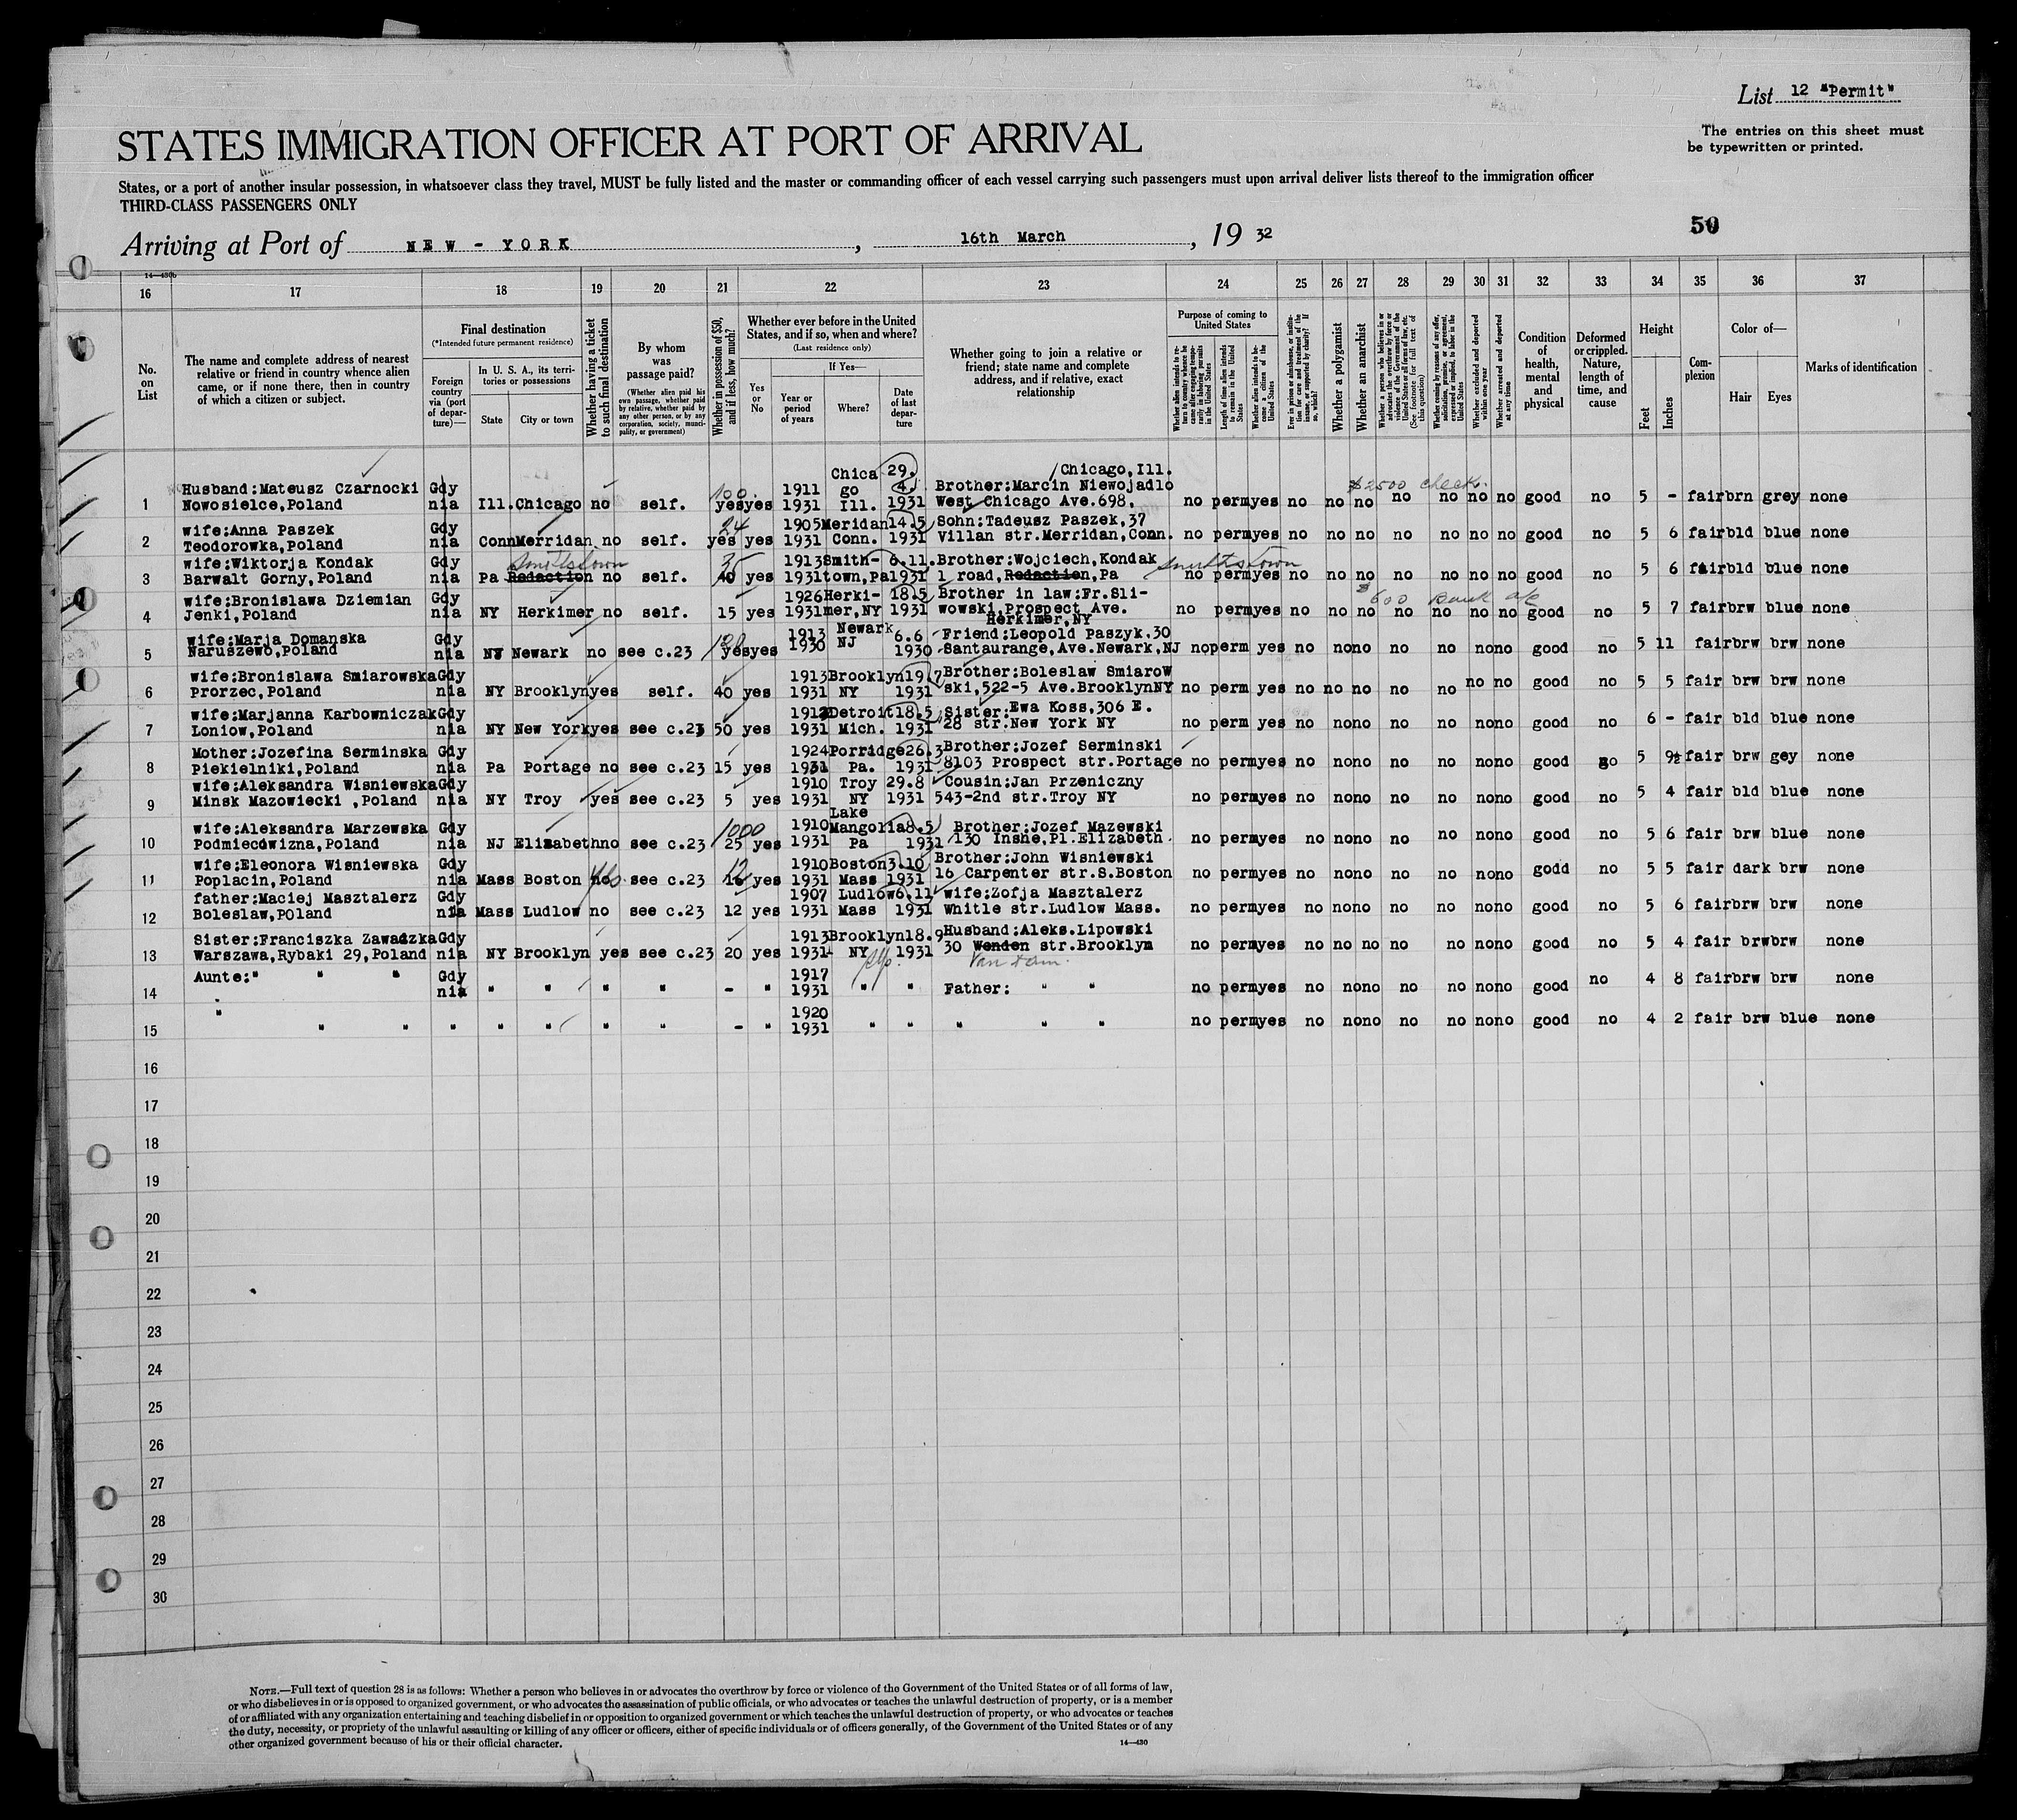 List 12 "Permit"
The entries on this sheet must
be typewritten or printed.
STATES IMMIGRATION OFFICER AT PORT OF ARRIVAL
States, or a port of another insular possession, in whatsoever class they travel, MUST be fully listed and the master or commanding officer of each vessel carrying such passengers must upon arrival deliver lists thereof to the immigration officer
THIRD-CLASS PASSENGERS ONLY
50
Arriving at Port of NEW - YORK, 16th March, 19 32
14-430b
16 17 18 19 20 21 22 23 24 25 26 27 28 29 30 31 32 33 34 35 36 37
No. on List
The name and complete address of nearest relative or friend in country whence alien came, or if none there, then in country of which a citizen or subject.
Final destination
(*Intended future permanent residence)
Foreign country via (port of departure)—
In U. S. A., its territories or possessions
State City or town
Whether having a ticket to such final destination
By whom was passage paid?
(Whether alien paid his own passage, whether paid by relative, whether paid by any other person, or by any corporation, society, municipality, or government)
Whether in possession of $50, and if less, how much?
Whether ever before in the United States, and if so, when and where?
(Last residence only)
Yes or No
If Yes—
Year or period of years
Where?
Date of last departure
Whether going to join a relative or friend; state name and complete address, and if relative, exact relationship
Purpose of coming to United States
Whether alien intends to return to country whence he came after engaging temporarily in laboring pursuits in the United States
Length of time alien intends to remain in the United States
Whether alien intends to become a citizen of the United States
Ever in prison or almshouse, or institution for care and treatment of the insane, or supported by charity? If so, which?
Whether a polygamist
Whether an anarchist
Whether a person who believes in or advocates the overthrow by force or violence of the Government of the United States or all forms of law, etc. (See footnote for full text of this question)
Whether coming by reason of any offer, solicitation, promise, or agreement, expressed or implied, to labor in the United States
Whether excluded and deported within one year
Whether arrested and deported at any time
Condition of health, mental and physical
Deformed or crippled. Nature, length of time, and cause
Height
Feet Inches
Complexion
Color of—
Hair Eyes
Marks of identification
Chica 29. Chicago,Ill.
Husband:Mateusz Czarnocki Gdy 100 1911 go 4. Brother:Marcin Niewojadlo $2500 check.
1 Nowosielce,Poland nia Ill. Chicago no self. yes yes 1931 Ill. 1931 West Chicago Ave.698, no perm yes no no no no no no no good no 5 - fair brn grey none
wife:Anna Paszek Gdy 24 1905 Meridan 14.5 Sohn:Tadeusz Paszek,37
2 Teodorowka,Poland nia Conn Merridan no self. yes yes 1931 Conn. 1931 Villan str.Merridan,Conn. no perm yes no no no no no no no good no 5 6 fair bld blue none
wife:Wiktorja Kondak Gdy Smithstown 35 1913 Smith- 6.11. Brother:Wojciech,Kondak Smithstown
3 Barwalt Gorny,Poland nia Pa Redaction no self. 40 yes 1931 town,Pa 1931 1 road,Redaction,Pa no perm yes no no no no no no no good no 5 6 fair bld blue none
wife:Bronislawa Dziemian Gdy 1926 Herki- 18.5 Brother in law:Fr.Sli- $600 Bank a/c
4 Jenki,Poland nia NY Herkimer no self. 15 yes 1931 mer,NY 1931 wowski,Prospect Ave. no perm yes no no no no no no no good no 5 7 fair brw blue none
Herkimer,NY
wife:Marja Domanska Gdy 120 1913 Newark 6.6 Friend:Leopold Paszyk.30
5 Naruszewo,Poland nia NJ Newark no see c.23 yes yes 1930 NJ 1930 Santaurange,Ave.Newark,NJ no perm yes no no no no no no no good no 5 11 fair brw brw none
wife:Bronislawa Smiarowska Gdy 1913 Brooklyn 19.7 Brother:Boleslaw Smiarow
6 Prorzec,Poland nia NY Brooklyn yes self. 40 yes 1931 NY 1931 ski,522-5 Ave.Brooklyn NY no perm yes no no no no no no no good no 5 5 fair brw brw none
wife:Marjanna Karbowniczak Gdy 1912 Detroit 18.5 Sister:Ewa Koss,306 E.
7 Loniow,Poland nia NY New York yes see c.23 50 yes 1931 Mich. 1931 28 str.New York NY no perm yes no no no no no no no good no 6 - fair bld blue none
Mother:Jozefina Serminska Gdy 1924 Porridge 26.3 Brother:Jozef Serminski
8 Piekielniki,Poland nia Pa Portage no see c.23 15 yes 1931 Pa. 1931 8103 Prospect str.Portage no perm yes no no no no no no no good no 5 9½ fair brw gey none
wife:Aleksandra Wisniewska Gdy 1910 Troy 29.8 Cousin:Jan Przeniczny
9 Minsk Mazowiecki ,Poland nia NY Troy yes see c.23 5 yes 1931 NY 1931 543-2nd str.Troy NY no perm yes no no no no no no no good no 5 4 fair bld blue none
Lake
wife:Aleksandra Marzewska Gdy 1000 1910 Mangolia 8.5 Brother:Jozef Mazewski
10 Podmiecdwizna,Poland nia NJ Elizabeth no see c.23 25 yes 1931 Pa 1931 130 Inshe,Pl.Elizabeth no perm yes no no no no no no no good no 5 6 fair brw blue none
wife:Eleonora Wisniewska Gdy yes 12 1910 Boston 3.10 Brother:John Wisniewski
11 Poplacin,Poland nia Mass Boston no see c.23 16 yes 1931 Mass 1931 16 Carpenter str.S.Boston no perm yes no no no no no no no godd no 5 5 fair dark brw none
father:Maciej Masztalerz Gdy 1907 Ludlow 6.11 wife:Zofja Masztalerz
12 Boleslaw,POland nia Mass Ludlow no see c.23 12 yes 1931 Mass 1931 Whitle str.Ludlow Mass. no perm yes no no no no no no no good no 5 6 fair brw brw none
Sister:Franciszka Zawadzka Gdy 1913 Brooklyn 18.9 Husband:Aleks.Lipowski
13 Warszawa,Rybaki 29,Poland nia NY Brooklyn yes see c.23 20 yes 1931 NY 1931 30 Wenden str.Brooklyn no perm yes no no no no no no no good no 5 4 fair brw brw none
Van Dam.
Aunte:" " " Gdy 1917
14 nia " " " " - " 1931 " " Father: " " no perm yes no no no no no no no good no 4 8 fair brw brw none
" 1920
15 " " " " " " " - " 1931 " " " " " no perm yes no no no no no no no good no 4 2 fair brw blue none
16
17
18
19
20
21
22
23
24
25
26
27
28
29
30
NOTE.—Full text of question 28 is as follows: Whether a person who believes in or advocates the overthrow by force or violence of the Government of the United States or of all forms of law,
or who disbelieves in or is opposed to organized government, or who advocates the assassination of public officials, or who advocates or teaches the unlawful destruction of property, or is a member
of or affiliated with any organization entertaining and teaching disbelief in or opposition to organized government or which teaches the unlawful destruction of property, or who advocates or teaches
the duty, necessity, or propriety of the unlawful assaulting or killing of any officer or officers, either of specific individuals or of officers generally, of the Government of the United States or of any
other organized government because of his or their official character.
14-430